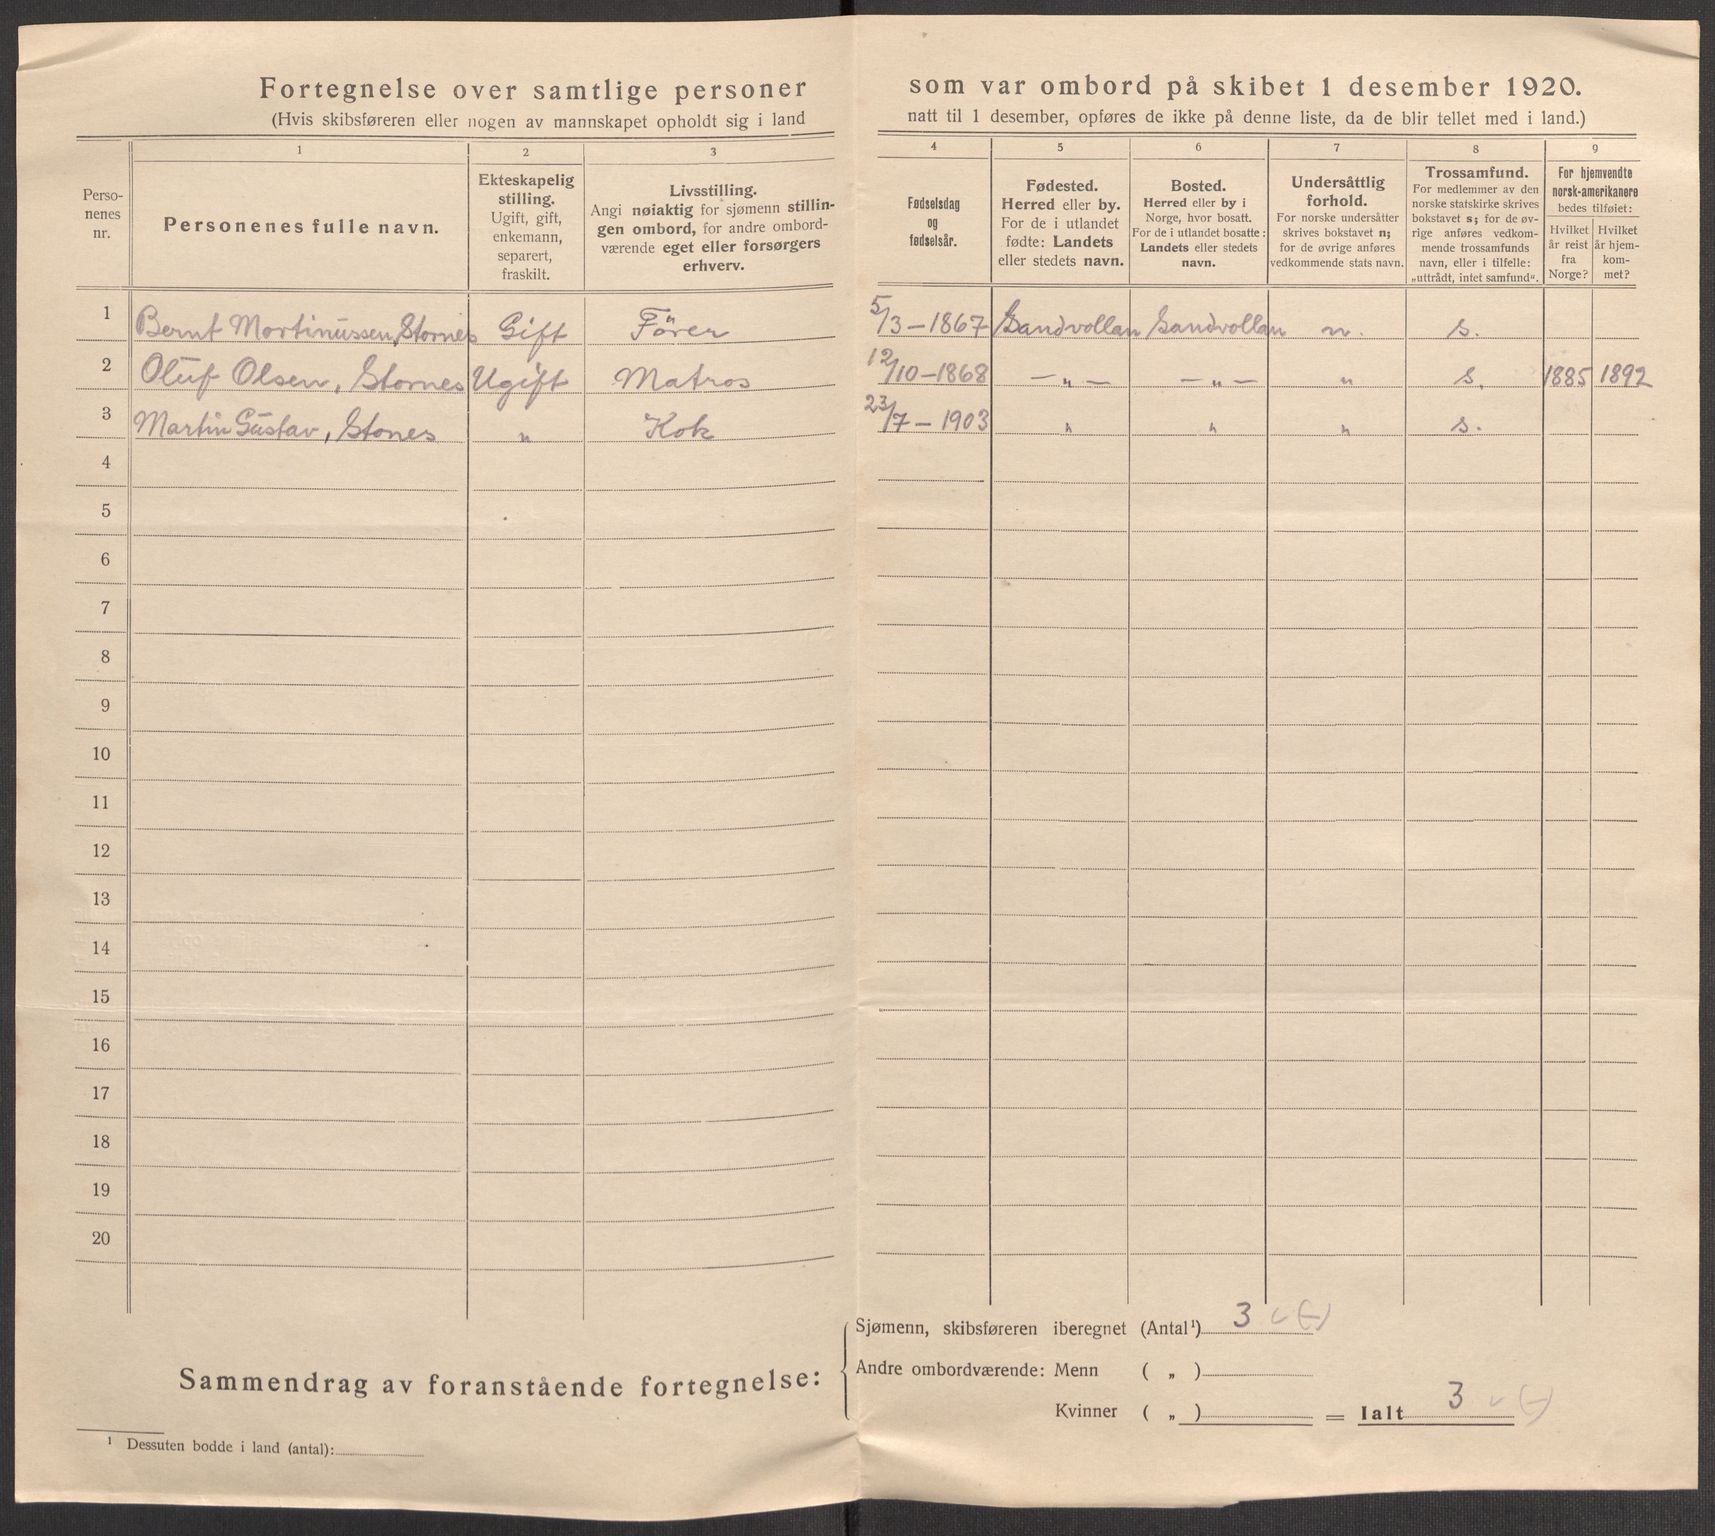 Fortegnelse over samtlige personer som var ombord på skibet 1 desember 1920.
(Hvis skibsføreren eller nogen av mannskapet opholdt sig i land natt til 1 desember, opføres de ikke på denne liste, da de blir tellet med i land.)
Perso-
nenes
nr.
1
Personenes fulle navn.
2
Ekteskapelig
stilling.
Ugift, gift,
enkemann,
separert,
fraskilt.
3
Livsstilling.
Angi nøiaktig for sjømenn stillin-
gen ombord, for andre ombord-
værende eget eller forsørgers
erhverv.
4
Fødselsdag
og
fødselsår.
5
Fødested.
Herred eller by.
For de i utlandet
fødte: Landets
eller stedets navn.
6
Bosted.
Herred eller by i
Norge, hvor bosatt.
For de i utlandet bosatte:
Landets eller stedets
navn.
7
Undersåttlig
forhold.
For norske undersåtter
skrives bokstavet n;
for de øvrige anføres
vedkommende stats navn.
8
Trossamfund.
For medlemmer av den
norske statskirke skrives
bokstavet s; for de øv-
rige anføres vedkom-
mende trossamfunds
navn, eller i tilfelle:
„uttrådt, intet samfund“.
9
For hjemvendte
norsk-amerikanere
bedes tilføiet:
Hvilket
år reist
fra
Norge?
Hvilket
år hjem-
kom-
met?
1 Bernt Martinussen, Stornes Gift Förer 5/3-1867 Sandvollan Sandvollan n. s.
2 Oluf Olsen, Stornes Ugift Matros 12/10-1868 -„- -„- „ s. 1885 1892
3 Martin Gustav, Stones „ Kok 23/7-1903 „ „ „ s.
4
5
6
7
8
9
10
11
12
13
14
15
16
17
18
19
20
Sammendrag av foranstående fortegnelse:
Sjømenn, skibsføreren iberegnet (Antal¹) 3 (-)
Andre ombordværende: Menn ( „ )
Kvinner ( „ ) = Ialt 3 (-)
¹ Dessuten bodde i land (antal):